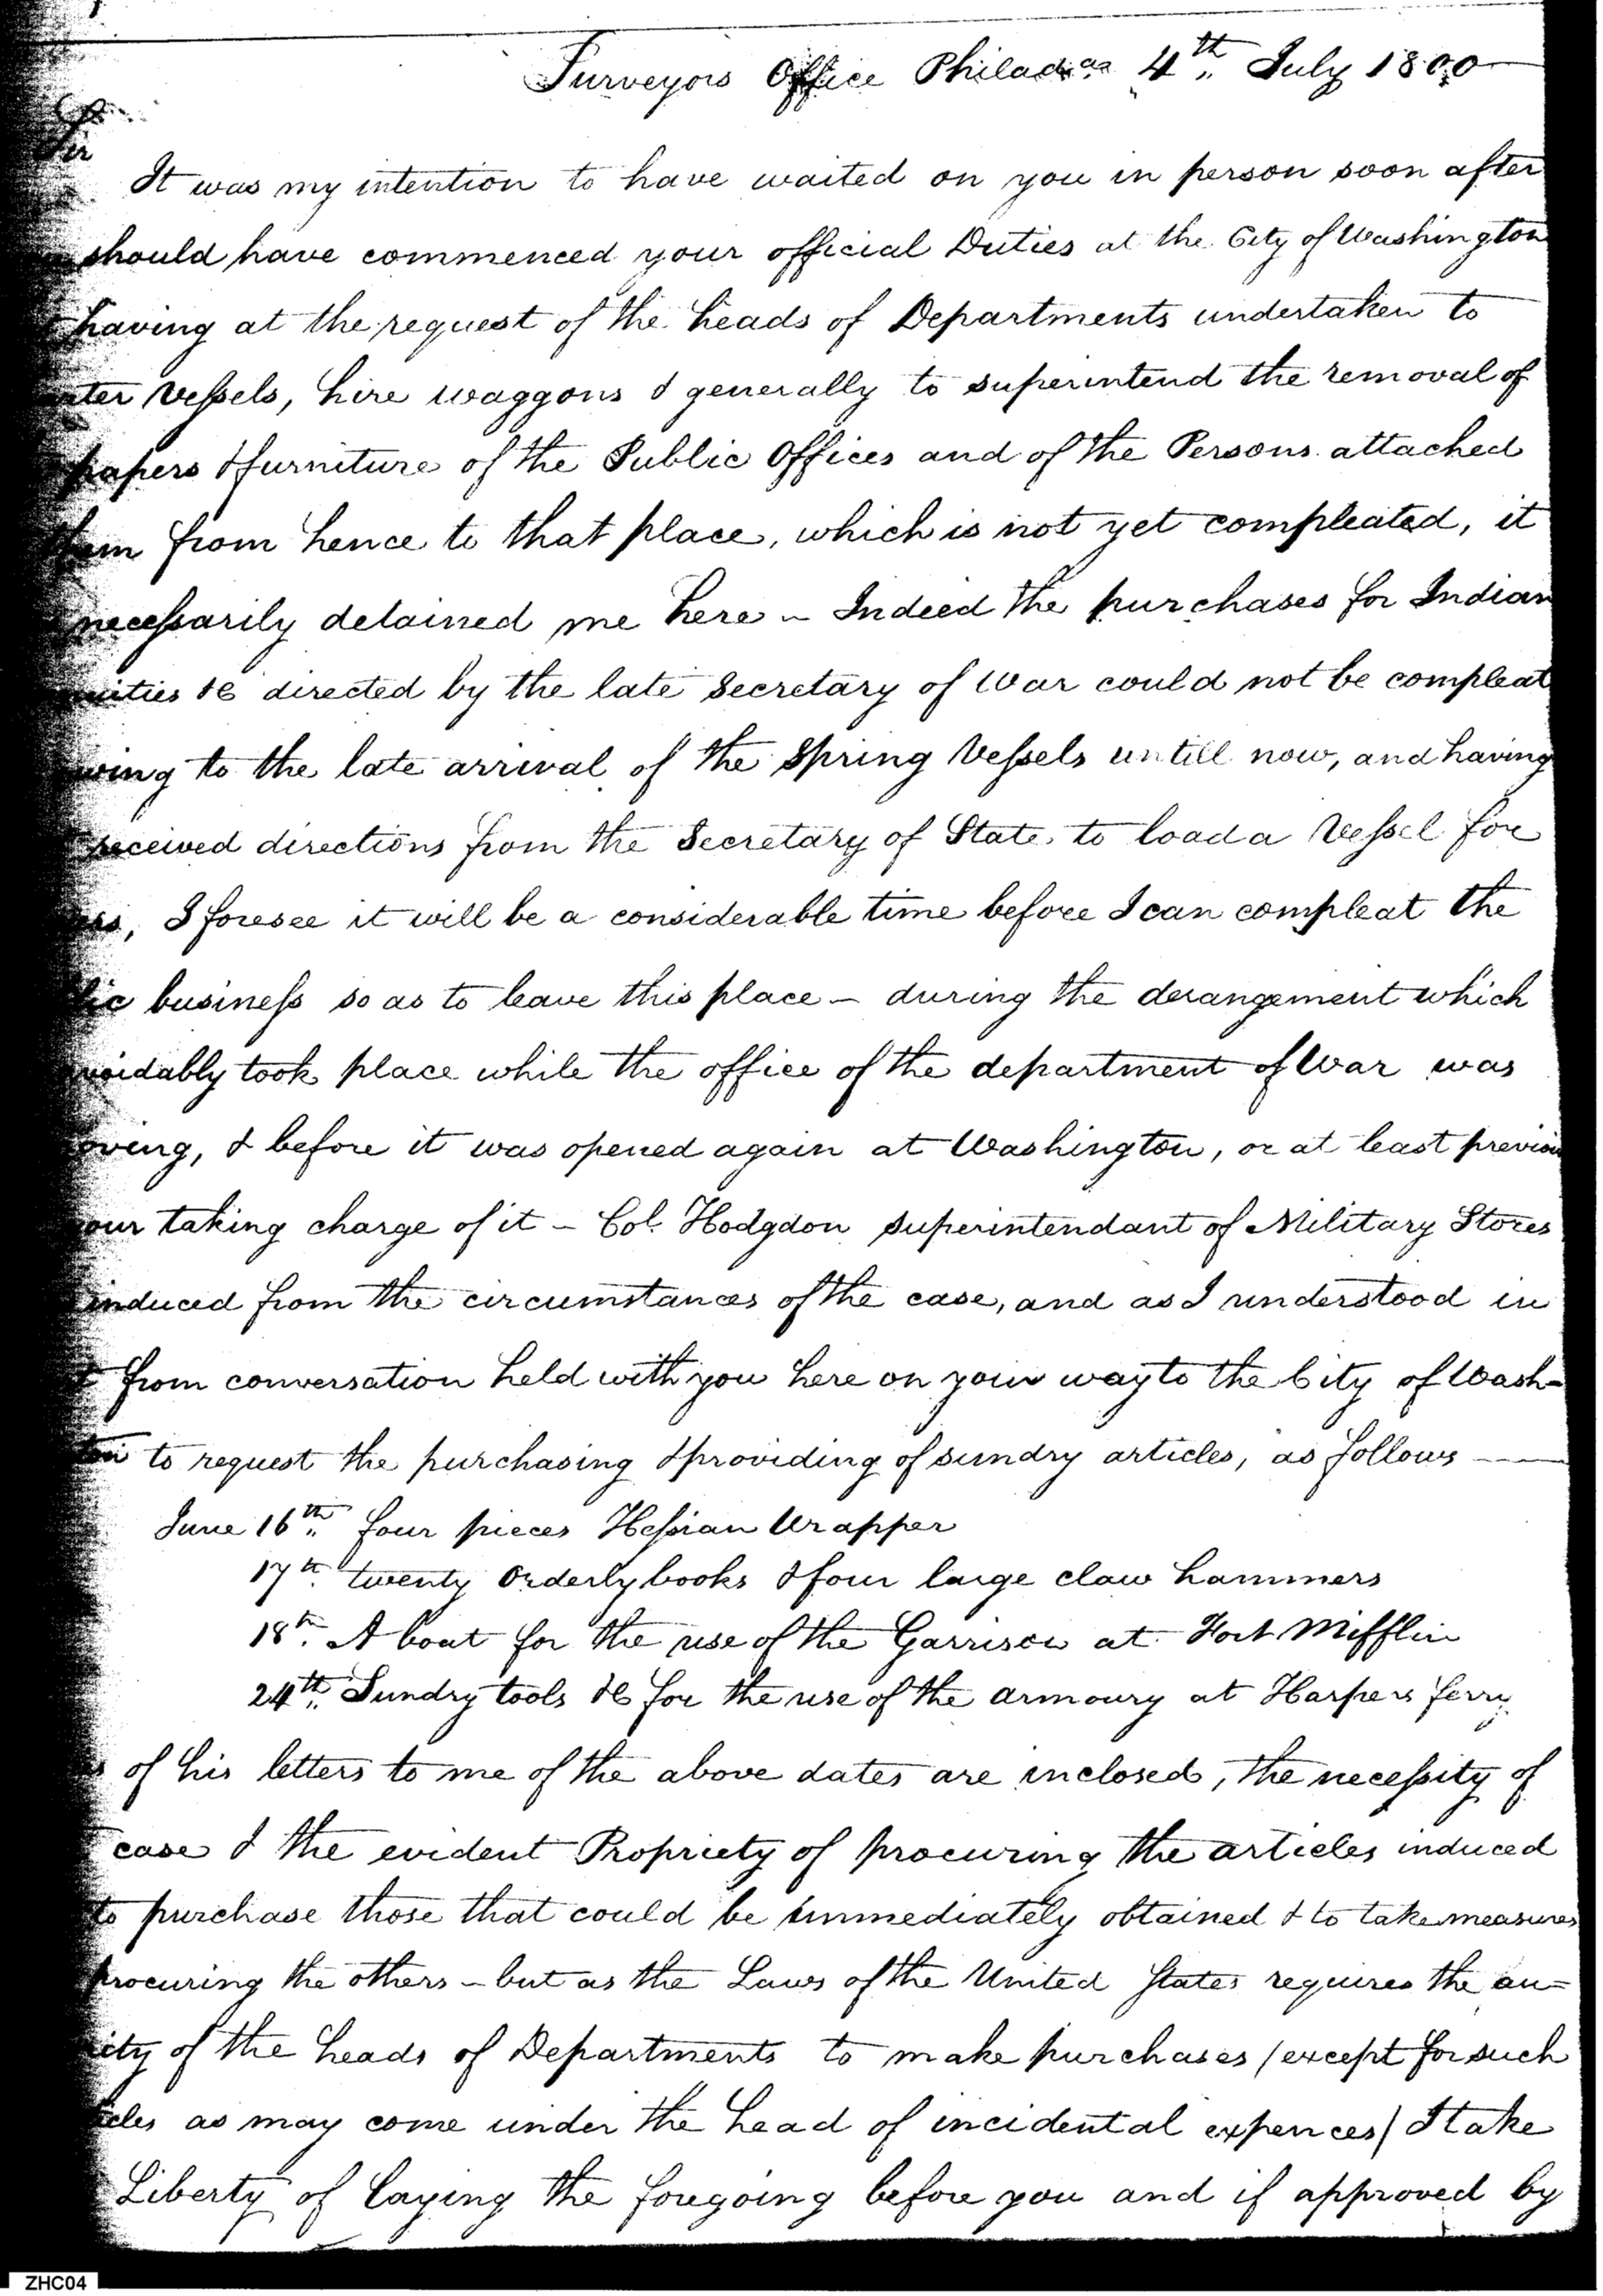 Surveyors Office Philada. 4th July 1800
Sir
It was my intention to have waited on you in person soon after
should have commenced your official Duties at the City of Washington
having at the request of the heads of Departments undertaken to
ter Vessels, hire waggons & generally to superintend the removal of
papers & furniture of the Public Offices and of the Persons attached
them from hence to that place, which is not yet compleated, it
necessarily detained me here - Indeed the purchases for Indian
nuities &c directed by the late Secretary of War could not be compleat
wing to the late arrival of the Spring Vessels untill now, and having
received directions from the Secretary of State to load a Vessel for
I foresee it will be a considerable time before I can compleat the
lic business so as to leave this place - during the derangement which
voidably took place while the office of the department of War was
oving, & before it was opened again at Washington, or at least previou
your taking charge of it - Col. Hodgdon superintendant of Military Stores
induced from the circumstances of the case, and as I understood in
from conversation held with you here on your way to the City of Wash-
ton to request the purchasing & providing of sundry articles, as follows
June 16th four pieces Hessian Wrapper
17th twenty Orderly books & four large claw hammers
18th A boat for the use of the Garrison at Fort Mifflin
24th Sundry tools &c for the use of the armoury at Harpers ferry
of his letters to me of the above dates are inclosed, the necessity of
case & the evident Propriety of procuring the articles induced
to purchase those that could be immediately obtained & to take measures
procuring the others - but as the Laws of the United States requires the au=
ity of the heads of Departments to make purchases (except for such
icles as may come under the head of incidental expences) I take
Liberty of laying the foregoing before you and if approved by
ZHC04